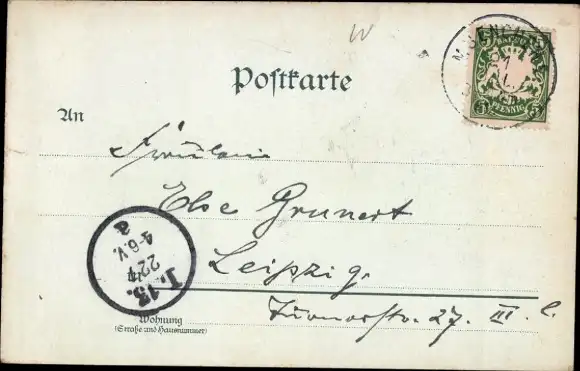 Postkarte
BAYERN
5 PFENNIG 5
An
Fräulein
Else Grunert
Leipzig.
27. III. l.
Wohnung
(Straße und Hausnummer)
I. 13.
22/4
4-6.V.
a